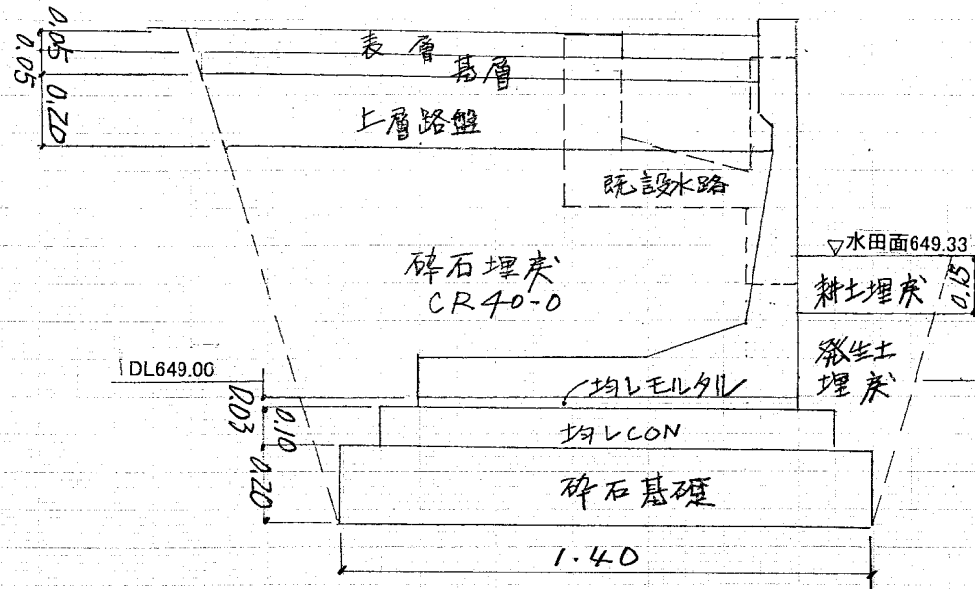 0.05
0.05
0.20
表層
基層
上層路盤
既設水路
砕石埋戻
CR40-0
▽水田面649.33
耕土埋戻
0.15
発生土
埋戻
DL649.00
0.03
0.10
0.20
均しモルタル
均しCON
砕石基礎
1.40